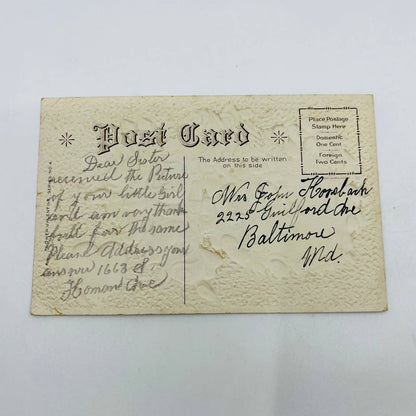 Post Card
The Address to be written
on this side
Place Postage
Stamp Here
Domestic
One Cent
Foreign
Two Cents
Dear Sister
received the Picture
of your little Girl
and am very thank
full for the same
Please Address your
answer 1663 S.
Homan Ave
John
2225 Guilford Ave
Baltimore
Md.